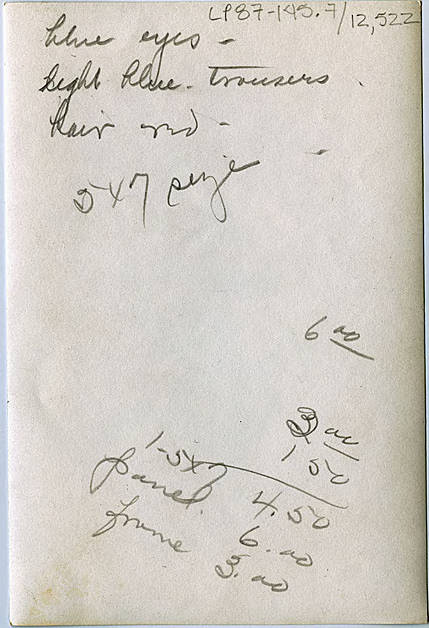 LP87-145.7/12,522
blue eyes -
light blue. trousers
hair red -
5x7 size
6 00
3 00
1-5x7 1 50
panel 4.50
frame 6.00
3.00